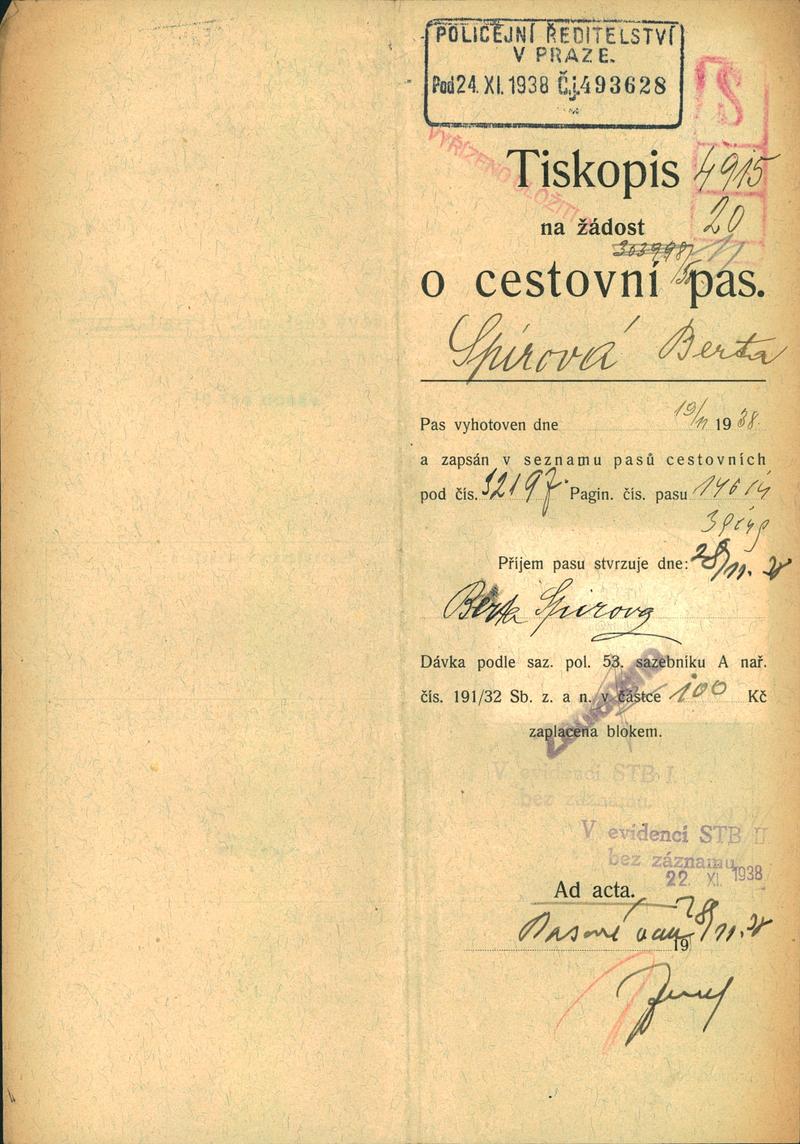 POLICEJNÍ ŘEDITELSTVÍ
V PRAZE.
Pod 24. XI. 1938 Čj. 493628
S
VYŘÍZENO ULOŽITI
Tiskopis 4915
na žádost 20
o cestovní pas.
Spírová Berta
Pas vyhotoven dne 19/11 1938.
a zapsán v seznamu pasů cestovních
pod čís. 32197. Pagin. čís. pasu
Příjem pasu stvrzuje dne: 28/11. 38
Berta Spirova
Dávka podle saz. pol. 53. sazebníku A nař.
čís. 191/32 Sb. z. a n. v částce 100 Kč
zaplacena blokem.
V evidenci STB I.
bez záznamu.
V evidenci STB II
bez záznamu
22. XI. 1938
Ad acta.
28/11. 38
19